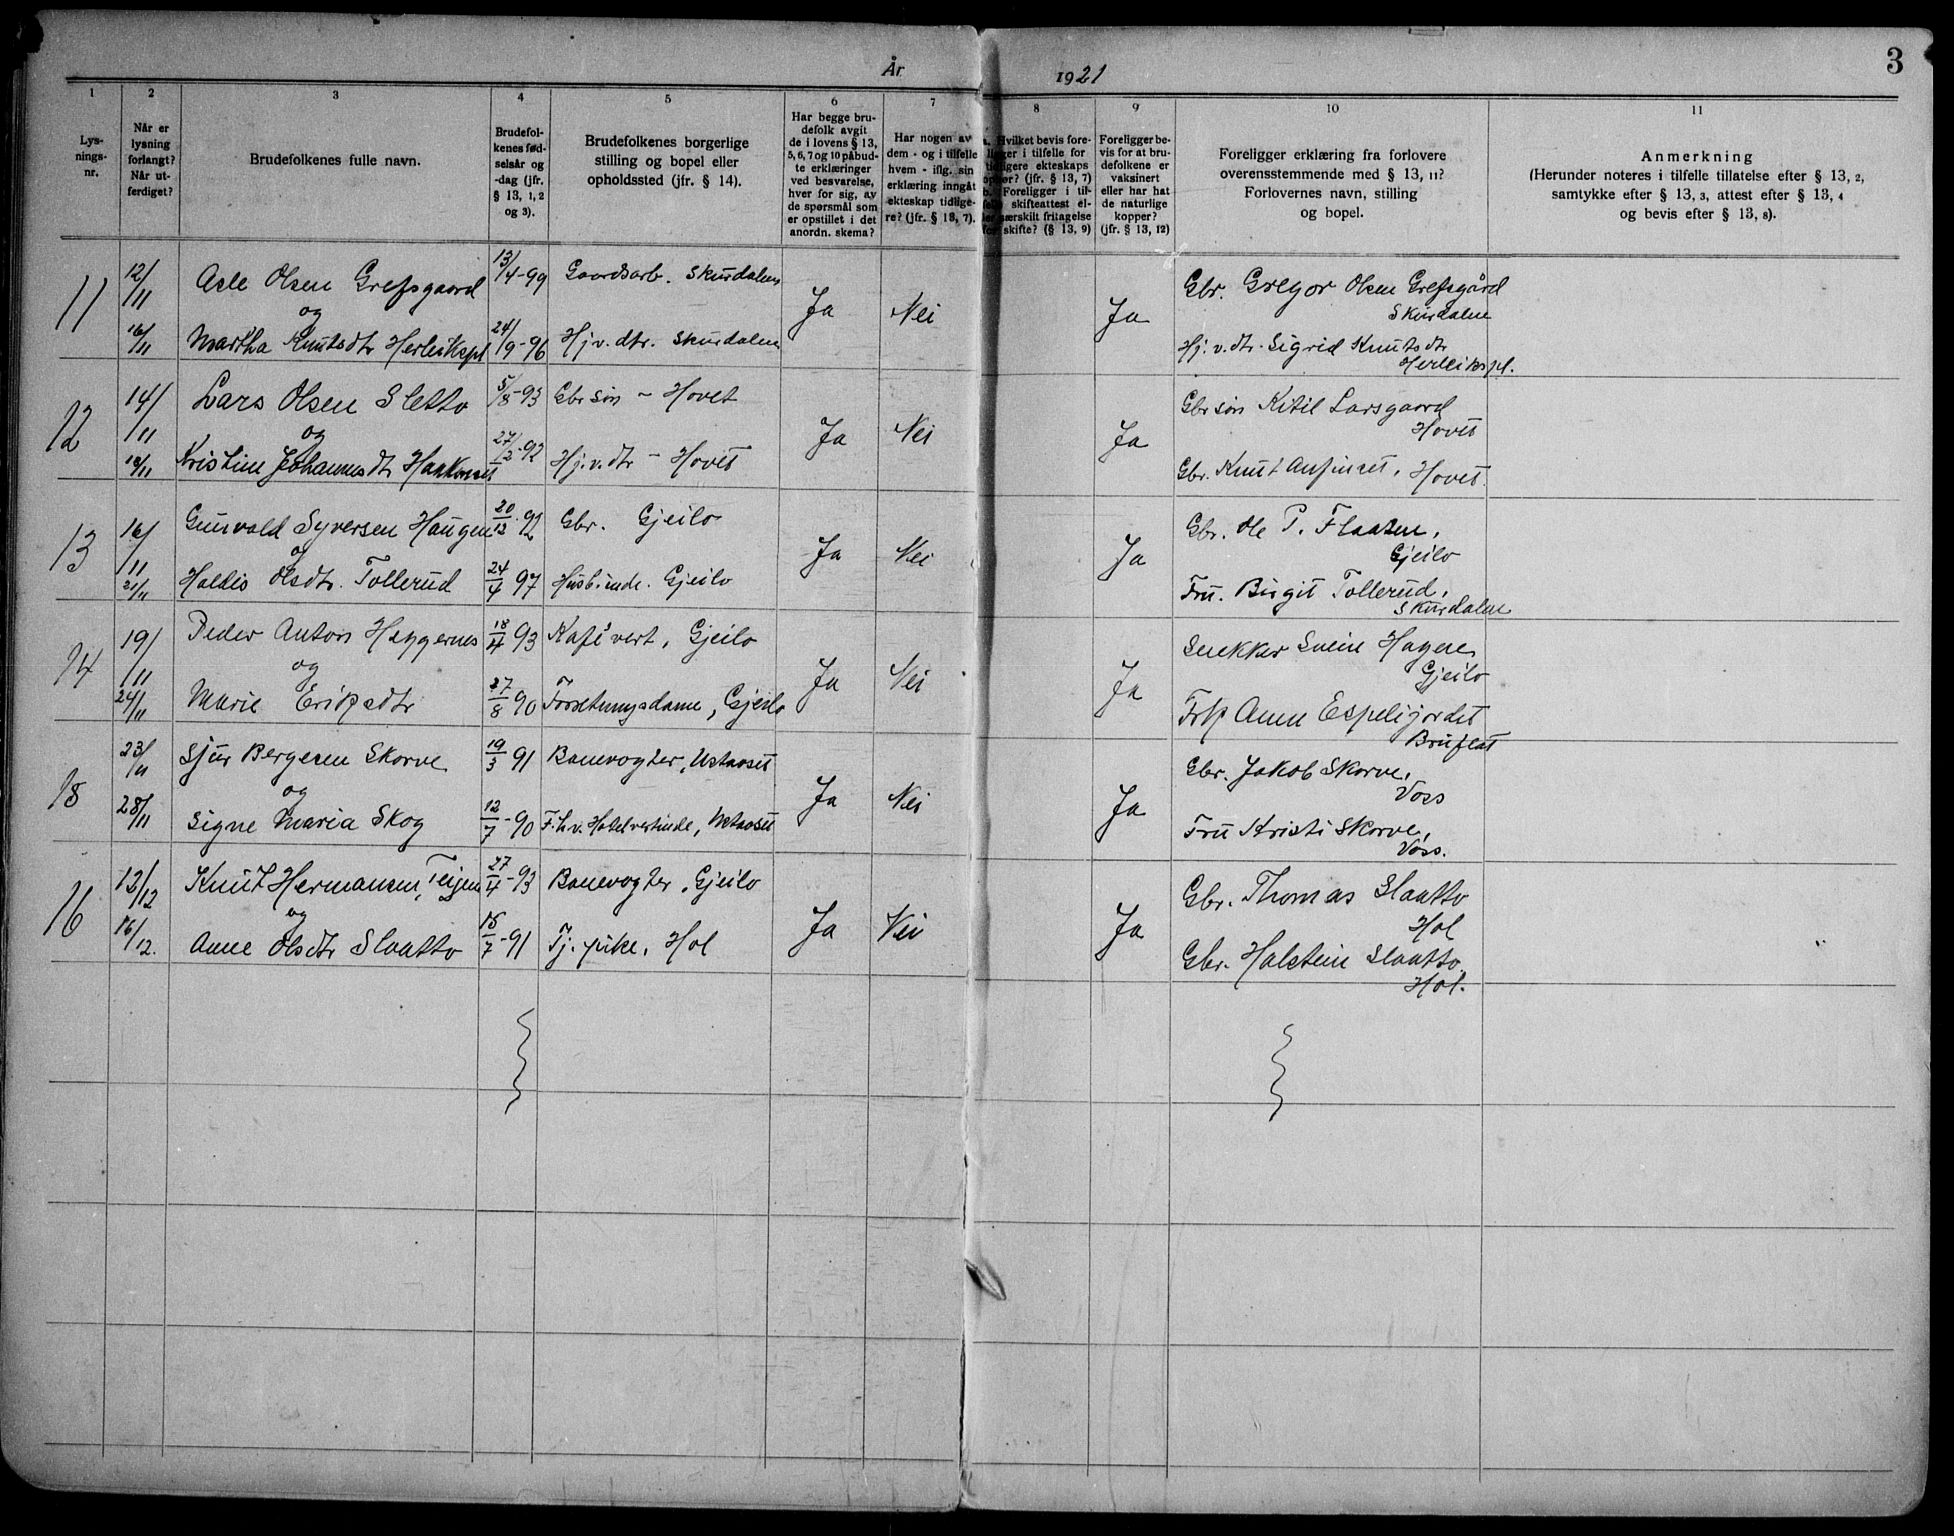 År 1921
3
1 2 3 4 5 6 7 8 9 10 11
Lys-
nings-
nr.
Når er
lysning
forlangt?
Når ut-
ferdiget?
Brudefolkenes fulle navn.
Brudefol-
kenes fød-
selsår og
-dag (jfr.
§ 13, 1, 2
og 3).
Brudefolkenes borgerlige
stilling og bopel eller
opholdssted (jfr. § 14).
Har begge bru-
defolk avgit
de i lovens § 13,
5, 6, 7 og 10 påbud-
te erklæringer
ved besvarelse,
hver for sig, av
de spørsmål som
er opstillet i det
anordn. skema?
Har nogen av
dem - og i tilfelle
hvem - iflg. sin
erklæring inngåt
ekteskap tidlige-
re? (jfr. § 13, 7).
Hvilket bevis fore-
i tilfelle for
ekteskaps
(jfr. § 13, 7)
Foreligger i til-
skifteattest el-
særskilt fritagelse
skifte? (§ 13, 9)
Foreligger be-
vis for at bru-
defolkene er
vaksinert
eller har hat
de naturlige
kopper?
(jfr. § 13, 12)
Foreligger erklæring fra forlovere
overensstemmende med § 13, 11?
Forlovernes navn, stilling
og bopel.
Anmerkning
(Herunder noteres i tilfelle tillatelse efter § 13, 2,
samtykke efter § 13, 3, attest efter § 13, 4
og bevis efter § 13, 8).
11 12/11 Asle Olsen Grefsgaard 13/4-99 Gaardsarb. Skurdalen Ja Nei Ja Gbr. Gregor Olsen Grefsgård
og Skurdalen
16/11 Martha Knutsdtr Herleikspl 24/9-96 Hj.v.dtr. Skurdalen Hj.v.dtr. Sigrid Knutsdtr
Herleikspl.
12 14/11 Lars Olsen Sletto 5/8-93 Gbr søn - Hovet Ja Nei Ja Gbr søn Kitil Larsgaard
og Hovet
18/11 Kristine Johannesdtr 27/2-92 Hj.v.dtr - Hovet Gbr. Knut Hovet.
13 16/11 Gunvald Syversen Haugen 20/12-92 Gbr. Gjeilo Ja Nei Ja Gbr. Ole P. Flaaten,
og Gjeilo
21/11 Haldis Olsdtr. Tollerud 24/4 97 Gjeilo Fru. Birgit Tollerud,
Skurdalen
14 19/11 Peder Anton Heggernes 18/4 93 Kafévert, Gjeilo Ja Nei Ja Snekker Svein Hagen
og Gjeilo
24/11 Marie 27/8 90 Forretningsdame, Gjeilo Anna Espeligjordet
Bruflat
18 23/11 Sjur Bergesen Skorve 19/3 91 Banevogter, Ustaoset Ja Nei Ja Gbr. Jakob Skorve,
og Voss
28/11 Signe Maria Skog 12/7-90 F.h.v. Hotelvertinde, Ustaoset Fru Kristi Skorve,
Voss.
16 12/12 Knut Hermansen, Teigen 27/4-93 Banevogter, Gjeilo Ja Nei Ja Gbr. Thomas Slaatto
og Hol
16/12. Anne Olsdtr Slaatto 18/7-91 Tj. pike, Hol Gbr. Halstein Slaatto
Hol.